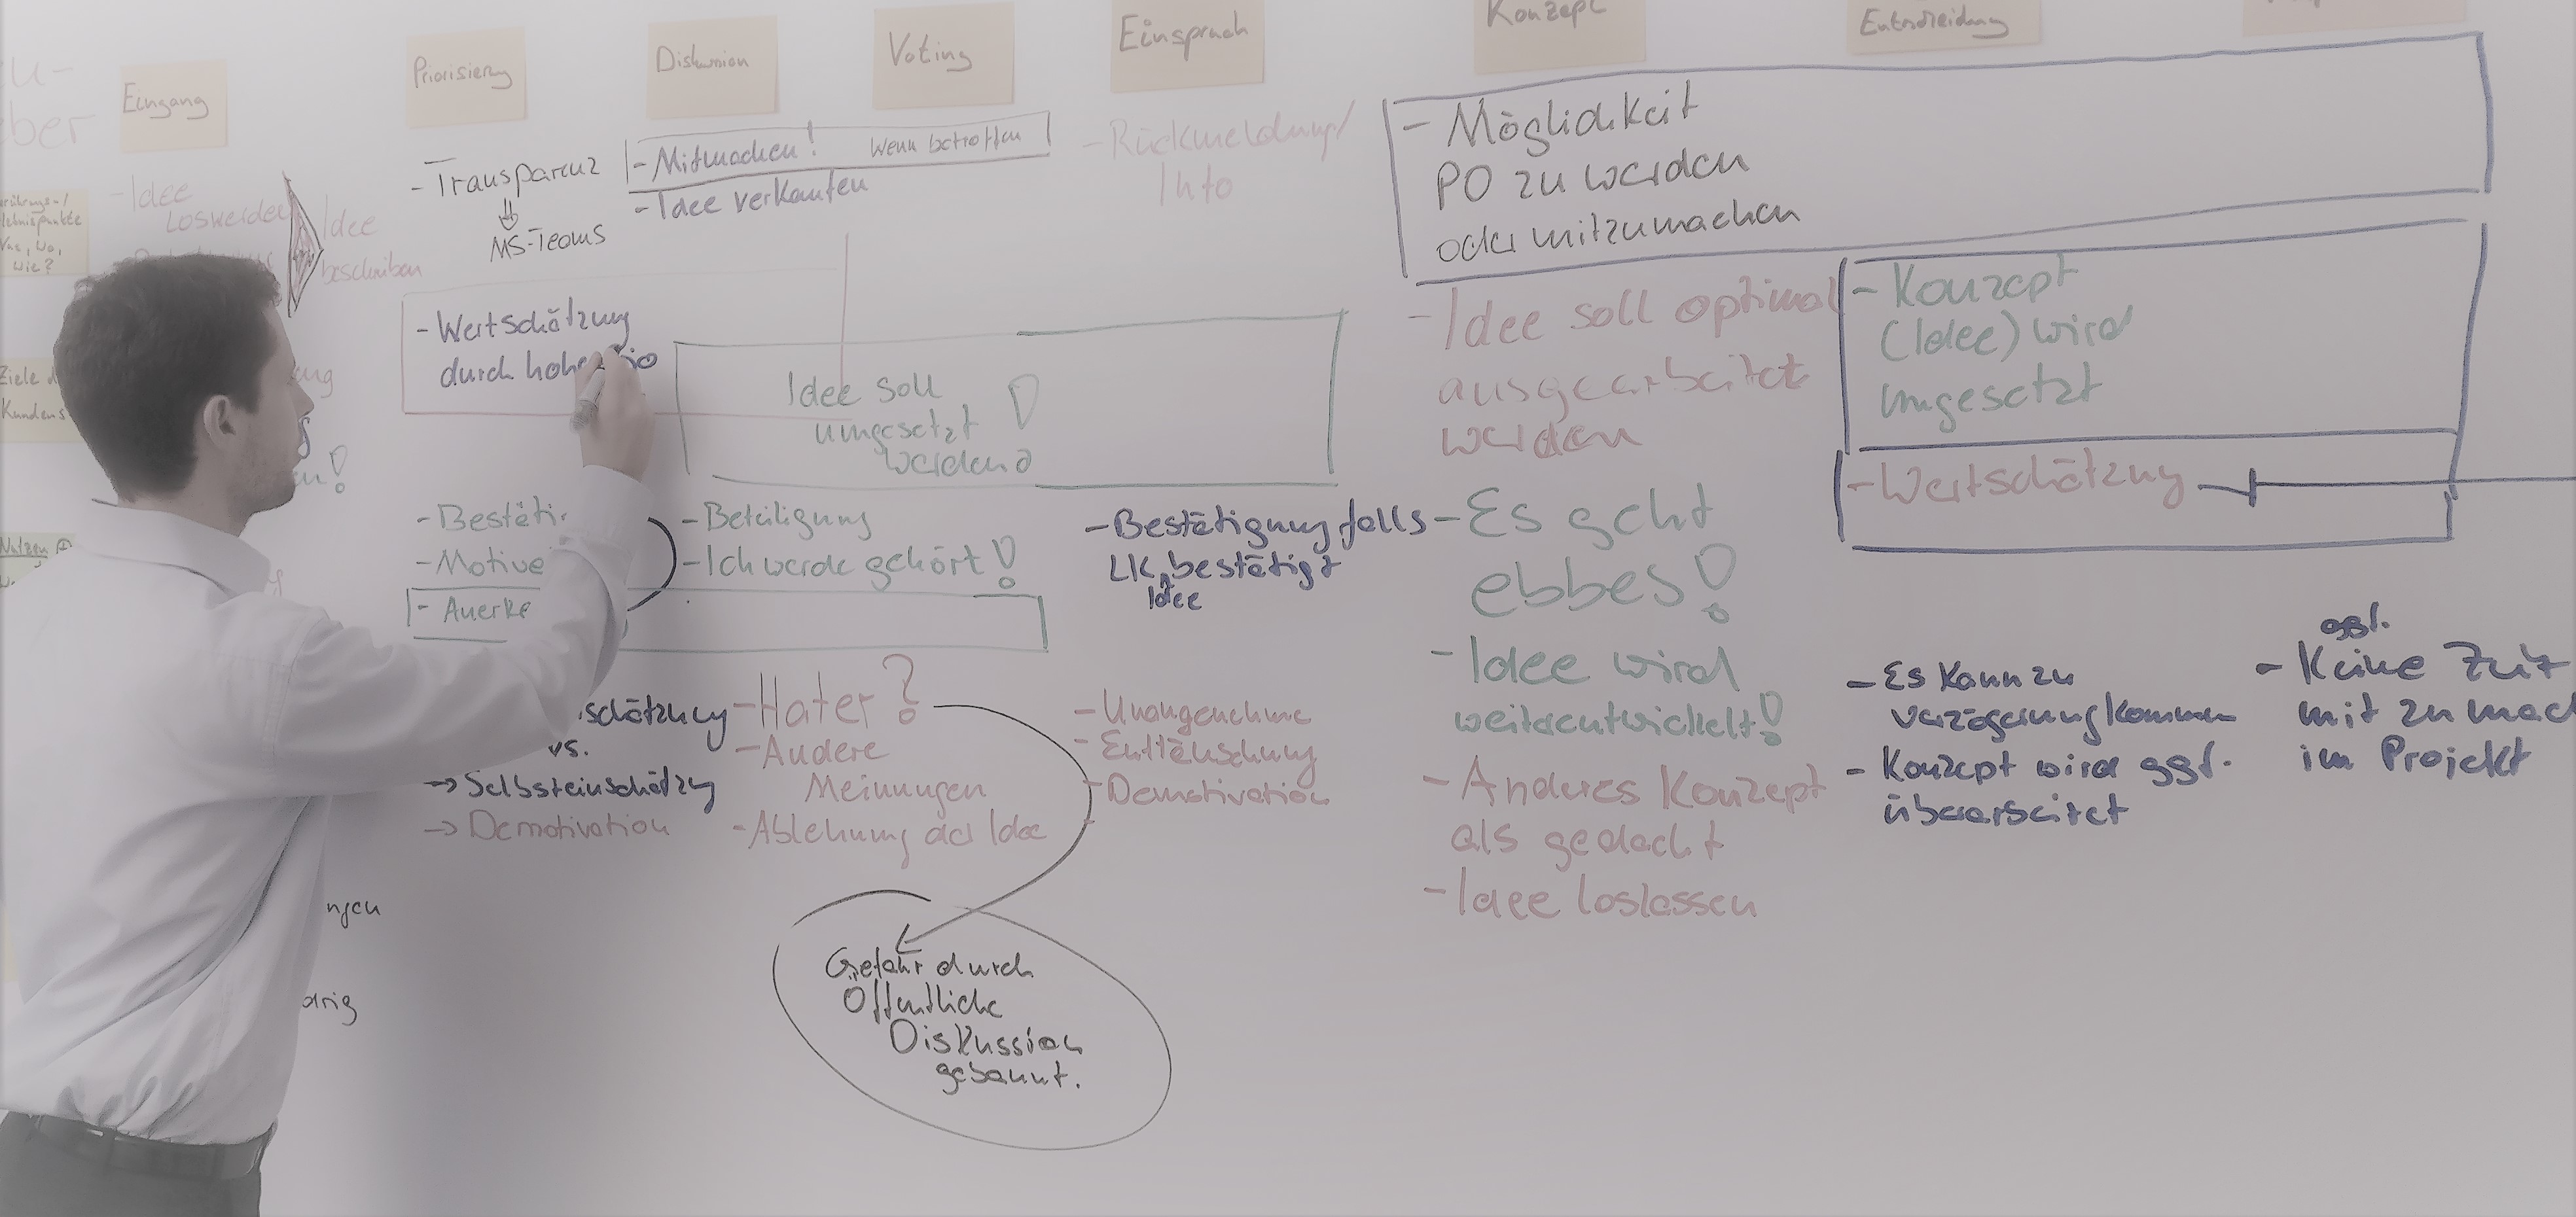 Eingang
Priorisierung
Diskussion
Voting
Einspruch
Konzept
Entscheidung
- Idee
loswerden
Idee
beschreiben
- Transparenz
MS-Teams
- Mitmachen! Wenn betroffen
- Idee verkaufen
- Rückmeldung/
Info
- Möglichkeit
PO zu werden
oder mitzumachen
Was, Wo,
Wie?
- Wertschätzung
durch hohe
Idee soll
umgesetzt
werden
- Idee soll optimal
ausgearbeitet
werden
- Konzept
(Idee) wird
umgesetzt
- Wertschätzung
Ziele
Kundens
Nutzen
- Bestäti
- Motiva
- Anerke
- Beteiligung
- Ich werde gehört!
- Bestätigung falls
LK bestätigt
Idee
- Es geht
ebbes!
- Idee wird
weiterentwickelt!
- Anderes Konzept
als gedacht
- Idee loslassen
schätzung
vs.
-> Selbsteinschätzung
-> Demotivation
- Hater?
- Andere
Meinungen
- Ablehnung der Idee
- Unangenehme
- Enttäuschung
- Demotivation
- Es kann zu
Verzögerung kommen
- Konzept wird ggf.
überarbeitet
ggf.
- Keine Zeit
mit zu mach
im Projekt
ngen
drig
Gefahr durch
Öffentliche
Diskussion
gebannt.